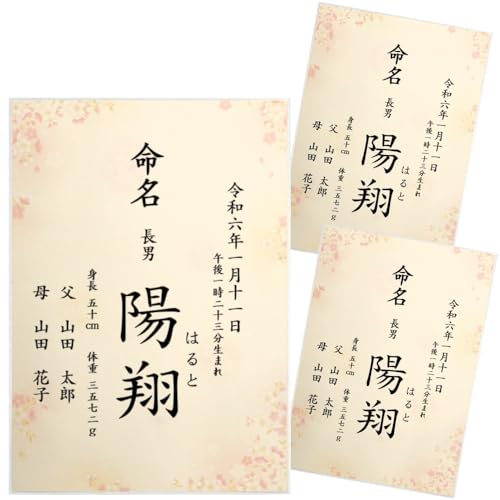 令和六年一月十一日
午後一時二十三分生まれ
命名
長男
陽翔
はると
身長 五十cm 体重 三五七二g
父 山田 太郎
母 山田 花子
令和六年一月十一日
午後一時二十三分生まれ
命名
長男
陽翔
はると
身長 五十cm 体重 三五七二g
父 山田 太郎
母 山田 花子
令和六年一月十一日
午後一時二十三分生まれ
命名
長男
陽翔
はると
身長 五十cm 体重 三五七二g
父 山田 太郎
母 山田 花子